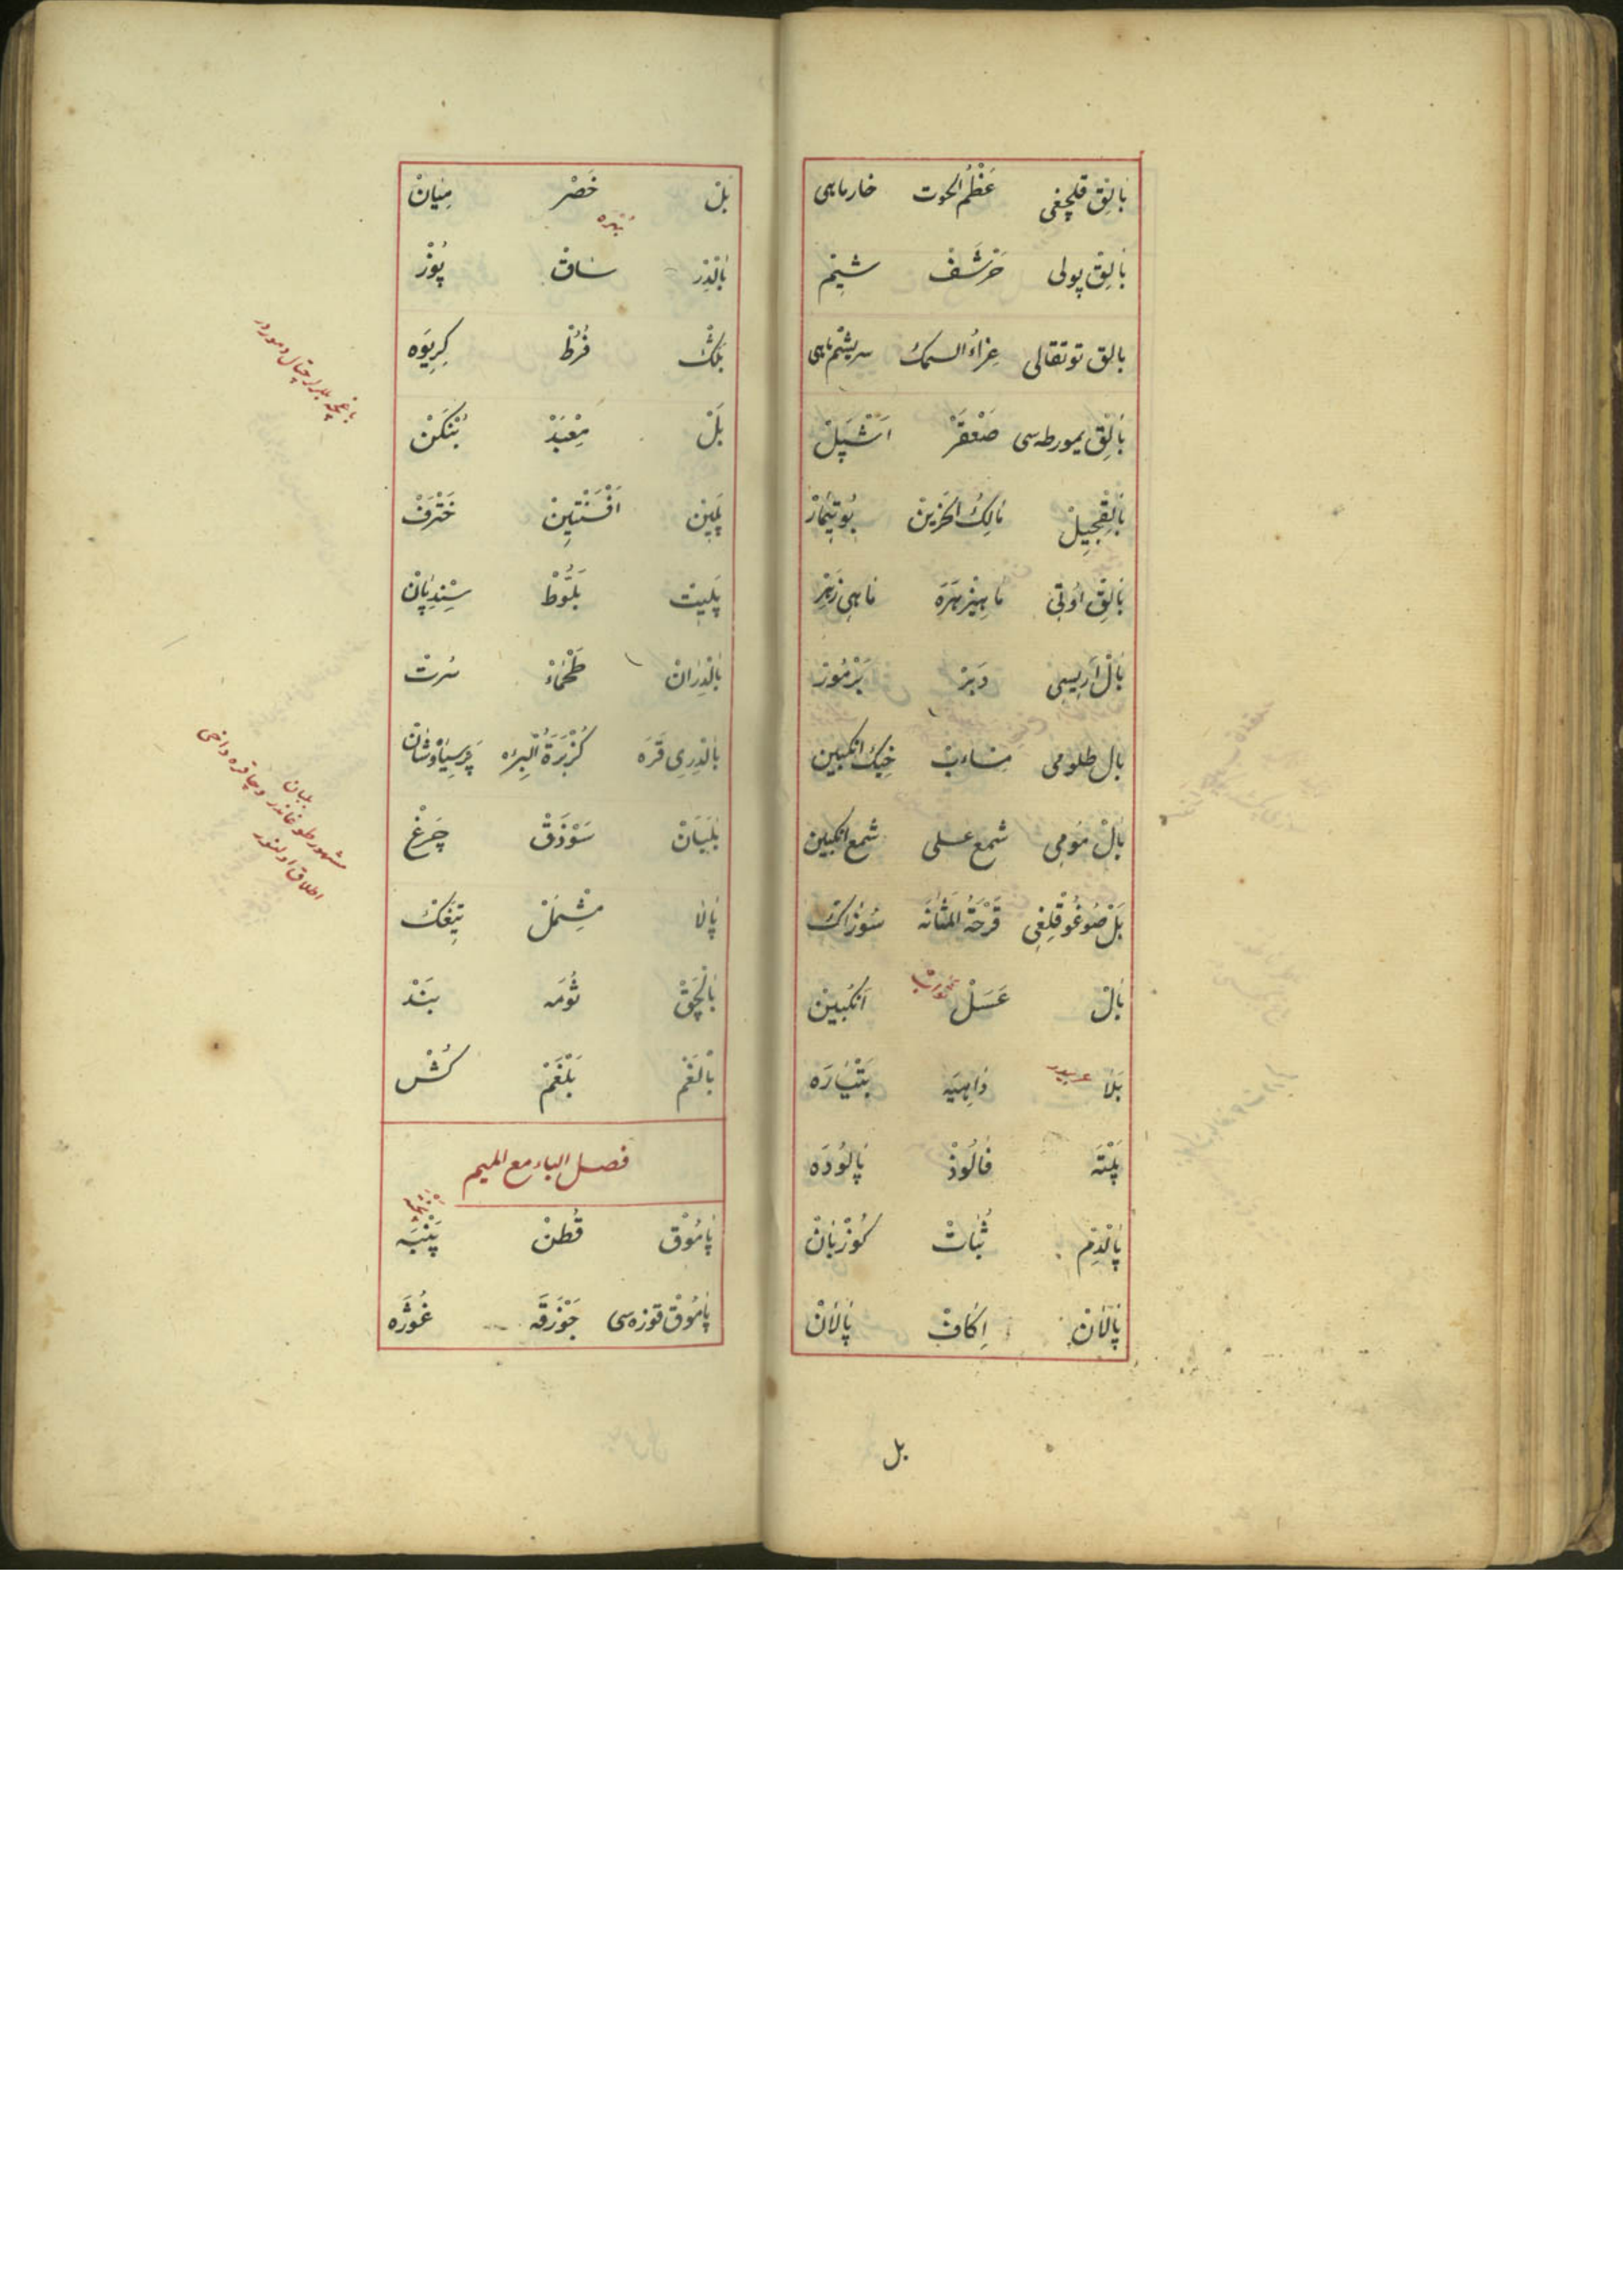 بَالِق قلچغى عَظْمُ الحوت خار ماهى
بَالِق پولى حَرْشَفْ شِيْم
بالق توتقالى غِرَاءُ السمك سريشم ماهى
بَالِق يمورطه‌سى صَعْقَرْ اَشْپَلْ
بَالِقْجِيلْ مَالِكُ الحَزِينْ بُوتِيمَارْ
بَالِق اوتى مَاهِيزَهْرَه مَاهِى زَهْرْ
بَالْ اَرِيسِى دَبْرْ پَرْمُوزْ
بَال طلومى مِسَابْ خِيكْ انكبين
بَالْ مُومِى شمع عسلى شمع انكبين
بَلْ صُوغُوقْلِغِى قَرْحَةُ المَثَانَه سُوزَاكْ
بَالْ عَسَلْ اَنْكَبِينْ
بَلَا عربيدر دَاهِيَه پَتْيَارَه
پَلْتَه فَالُوذْ پَالُودَه
پَالْدِمْ ثُبَاتْ كُوزْبَانْ
پَالَانْ اِكَافْ پَالَانْ
بل
بَلْ خَصْر مِيَانْ
بَالْدِرْ سَاق پُوزْ
بَلْكْ فُرُطْ كِرِيوَه
بَلْ مِعْبَدْ بُنْكَنْ
پَلِين اَفْسَنْتِينْ خَتْرَفْ
پَلِيت بَلُّوطْ سِنْدِيَانْ
بَالْدِرَانْ طَحْمَاءْ سُرتْ
بَالْدِرِى قَرَه كُزْبَرَةُ البِئْرِ پَرْسِيَاوُشَانْ
بَلَبَانْ سَوْذَقْ چَرْغْ
پَالَا مِشْمَلْ تِيغَكْ
بَالْچَقْ ثُومَه بَنْد
بَالْغَمْ بَلْغَمْ كُشْ
فصل الباء مع الميم
پَامُوقْ قُطْنْ پَنْبَه
پَامُوقْ قوزه‌سى جَوْزَقَه غُوزَه
مشهور طوغاندر وچاقره داخى
اطلاق اولنور